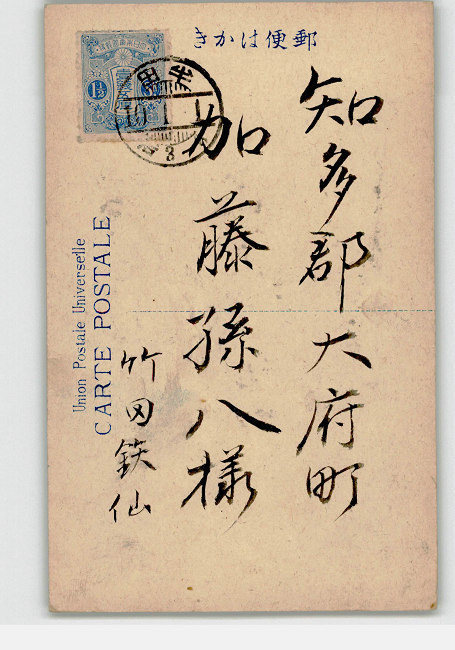 きかは便郵
知多郡大府町
加藤孫八様
竹田鉄仙
Union Postale Universelle
CARTE POSTALE
1½